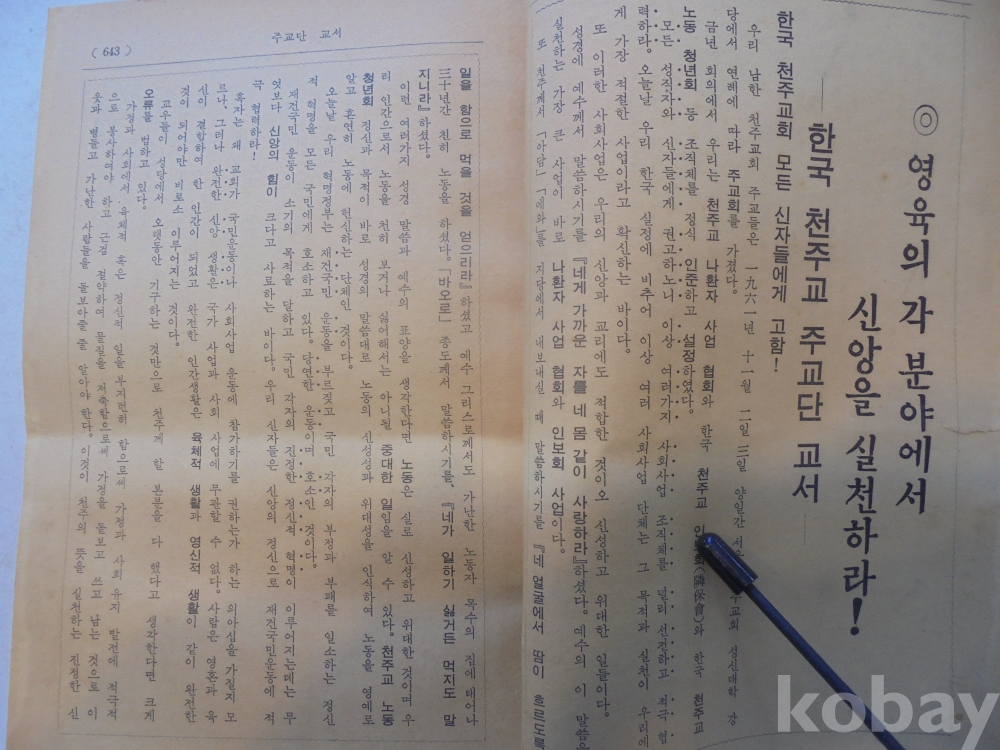 ◎ 영육의 각 분야에서
신앙을 실천하라!
― 한국 천주교 주교단 교서 ―
한국 천주교회 모든 신자들에게 고함!
우리 남한 천주교회 주교들은 一九六一년 十一월 二일三일 양일간 서 주교회 성신대학 강
당에서 연례에 따라 주교회를 가졌다.
금년 회의에서 우리는 천주교 나환자 사업 협회와 한국 천주교 인보회(隣保會)와 한국 천주교
노동 청년회 등 조직체를 정식 인준하고 설정하였다.
모든 성직자와 신자들에게 권고하노니 이상 여러가지 사회사업 조직체를 널리 선전하고 적극 협
력하라. 오늘날 우리 한국 실정에 비추어 이상 여러 사회사업 단체는 그 목적과 실천이 우리에
게 가장 적절한 사업이라고 확신하는 바이다.
또 이러한 사회사업은 우리의 신앙과 교리에도 적합한 것이오 신성하고 위대한 일들이다.
성경에 예수께서 말씀하시기를 『네게 가까운 자를 네 몸 같이 사랑하라』하셨다. 예수의 이 말씀을
실천하는 가장 큰 사업이 바로 나환자 사업 협회와 인보회 사업이다.
또 천주께서 「아담」「에와」를 지당에서 내보내실 때 말씀하시기를 『네 얼굴에서 땀이 흐르도록
주교단 교서
( 643 )
일을 함으로 먹을 것을 얻으리라』하셨고 예수 그리스도께서도 가난한 노동자 목수의 집에 태어나
三十년간 천히 노동을 하셨다. 「바오로」 종도께서 말씀하시기를, 『네가 일하기 싫거든 먹지도 말
지니라』하셨다.
이런 여러가지 성경 말씀과 예수의 표양을 생각한다면 노동은 실로 신성하고 위대한 것이며 우
리 인간으로서 노동을 천히 보거나 싫어해서는 아니될 중대한 일임을 알 수 있다. 천주교 노동
청년회 정신과 목적이 바로 성경의 말씀대로 노동의 신성성과 위대성을 인식하여 노동을 영예로
알고 혼연히 노동에 헌신하는 단체인 것이다.
오늘날 우리 혁명정부는 재건국민 운동을 부르짖고 국민 각자의 부정과 부패를 일소하는 정신
적 혁명을 모든 국민에게 호소하고 있다. 당연한 운동이며 호소인 것이다.
재건국민 운동이 소기의 목적을 달하고 국민 각자의 진정한 정신적 혁명이 이루어지는데는 무
엇보다 신앙의 힘이 크다고 사료하는 바이다. 우리 신자들은 신앙의 정신으로 재건국민운동에 적
극 협력하라!
혹자는 왜 교회가 국민운동이나 사회사업 운동에 참가하기를 권하는가 하는 의아심을 가질지 모
르나, 그러나 완전한 신앙 생활은 국가 사업과 사회 사업에 무관할 수 없다. 사람은 영혼과 육
신이 결합하여 한 인간이 되었고 완전한 인간생활은 육체적 생활과 영신적 생활이 같이 완전한
것이 되어야만 비로소 이루어지는 것이다.
교우들이 성당에서 오랫동안 기구하는 것만으로 천주께 할 본분을 다 했다고 생각한다면 크게
오류를 범하고 있다.
가정과 사회에서 육체적 혹은 정신적 일을 부지런히 함으로써 가정과 사회 유지 발전에 적극적
으로 봉사하여야 하고 근검 절약하여 물질을 저축함으로써 가정을 돌보고 쓰고 남는 것으로 이
웃과 병들고 가난한 사람들을 돌보아줄 줄 알아야 한다. 이것이 천주의 뜻을 실천하는 진정한 신
kobay